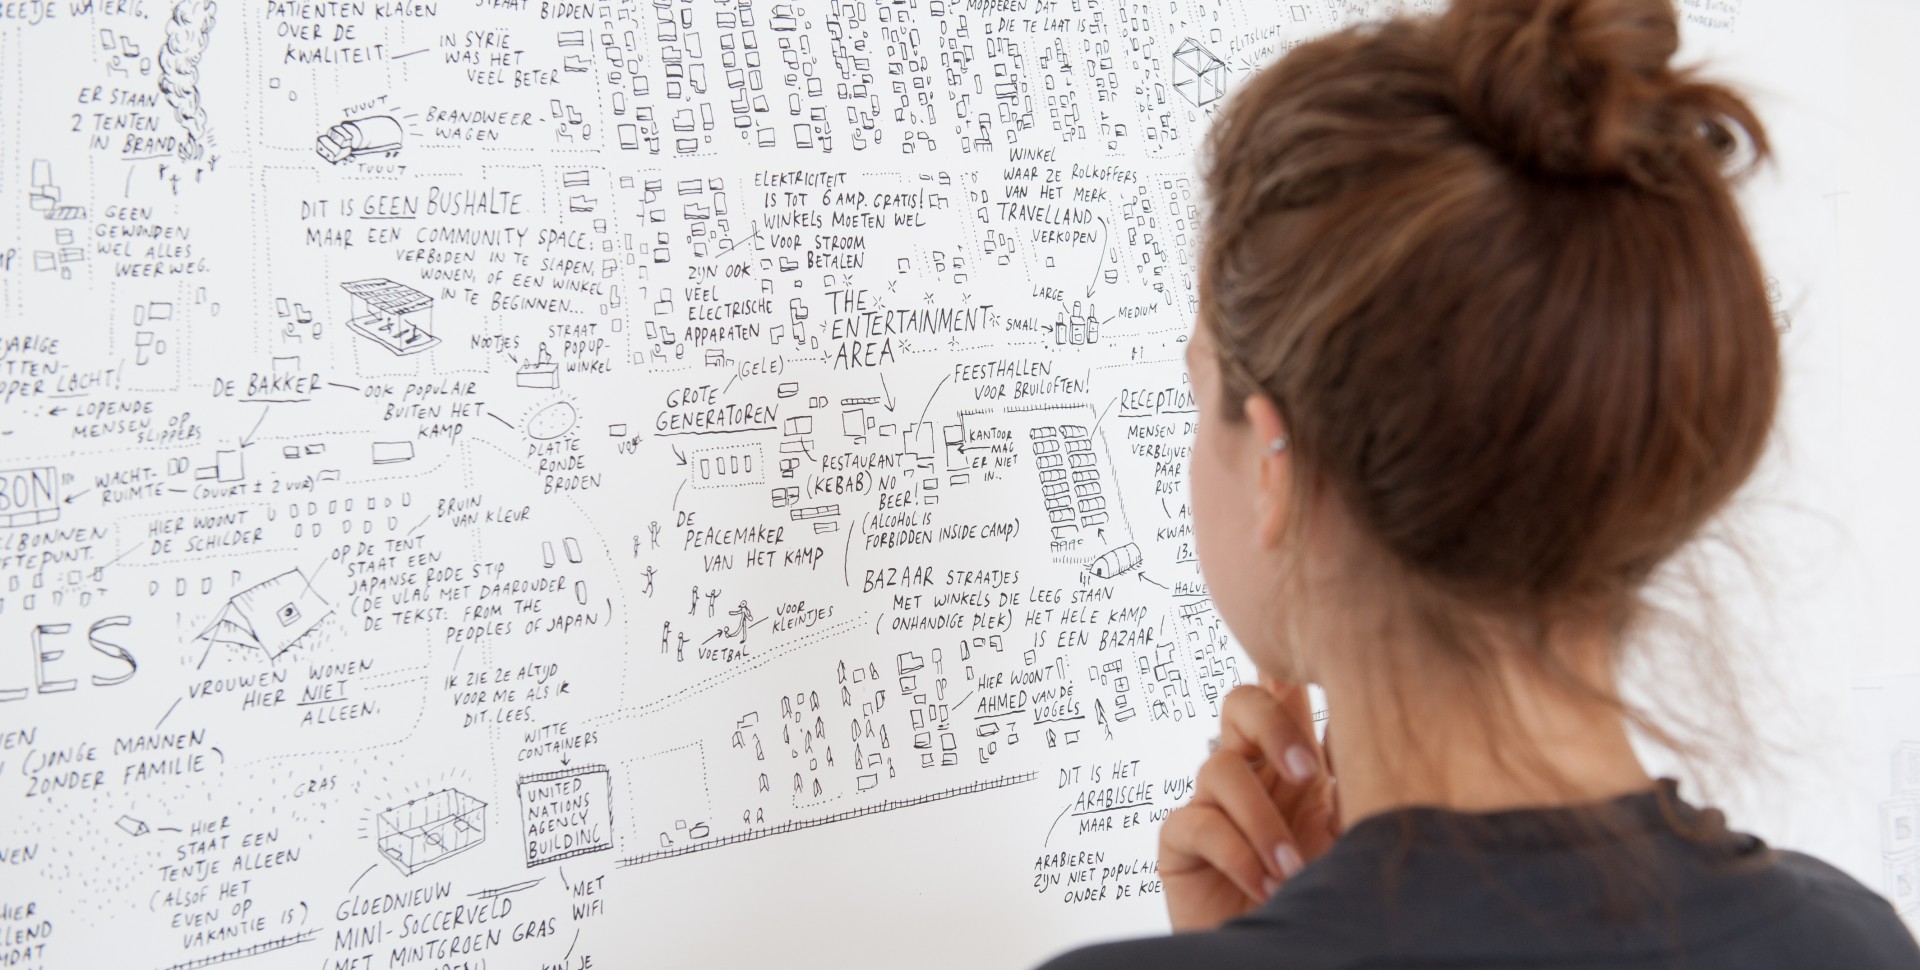 BEETJE WATERIG.
PATIËNTEN KLAGEN
OVER DE
KWALITEIT
STRAAT
BIDDEN
IN SYRIË
WAS HET
VEEL BETER
MOPPEREN DAT
DIE TE LAAT IS
FLITSLICHT
VAN HET
ER STAAN
2 TENTEN
IN BRAND
TUUUT
TUUUT
BRANDWEER-
WAGEN
GEEN
GEWONDEN
WEL ALLES
WEER WEG.
DIT IS GEEN BUSHALTE
MAAR EEN COMMUNITY SPACE:
VERBODEN IN TE SLAPEN,
WONEN, OF EEN WINKEL
IN TE BEGINNEN...
ELEKTRICITEIT
IS TOT 6 AMP. GRATIS!
WINKELS MOETEN WEL
VOOR STROOM
BETALEN
ZIJN OOK
VEEL
ELECTRISCHE
APPARATEN
WINKEL
WAAR ZE ROLKOFFERS
VAN HET MERK
TRAVELLAND
VERKOPEN
LARGE
SMALL
MEDIUM
THE
ENTERTAINMENT
AREA
NOOTJES
STRAAT
POPUP-
WINKEL
JARIGE
LACHT!
LOPENDE
MENSEN OP
SLIPPERS
DE BAKKER
OOK POPULAIR
BUITEN HET
KAMP
PLATTE
RONDE
BRODEN
(GELE)
GROTE
GENERATOREN
FEESTHALLEN
VOOR BRUILOFTEN!
KANTOOR
MAG
ER NIET
IN..
RESTAURANT
(KEBAB) NO
BEER!
(ALCOHOL IS
FORBIDDEN INSIDE CAMP)
RECEPTION
MENSEN DIE
VERBLIJVEN
PAAR
RUST
KWAM
13.
HALVE
BON
WACHT-
RUIMTE
(DUURT ± 2 UUR)
HIER WOONT
DE SCHILDER
BRUIN
VAN KLEUR
OP DE TENT
STAAT EEN
JAPANSE RODE STIP
(DE VLAG MET DAARONDER
DE TEKST: FROM THE
PEOPLES OF JAPAN)
DE
PEACEMAKER
VAN HET KAMP
BAZAAR STRAATJES
MET WINKELS DIE LEEG STAAN
(ONHANDIGE PLEK) HET HELE KAMP
IS EEN BAZAAR!
VOOR
KLEINTJES
VOETBAL
LES
VROUWEN WONEN
HIER NIET
ALLEEN.
IK ZIE ZE ALTIJD
VOOR ME ALS IK
DIT LEES.
HIER WOONT
AHMED VAN DE
VOGELS
(JONGE MANNEN
ZONDER FAMILIE)
GRAS
WITTE
CONTAINERS
UNITED
NATIONS
AGENCY
BUILDING
DIT IS HET
ARABISCHE WIJK
MAAR ER WO
HIER
STAAT EEN
TENTJE ALLEEN
(ALSOF HET
EVEN OP
VAKANTIE IS)
ARABIEREN
ZIJN NIET POPULAIR
ONDER DE KOE
GLOEDNIEUW
MINI-SOCCERVELD
(MET MINTGROEN GRAS
MET
WIFI
KAN JE
HIER